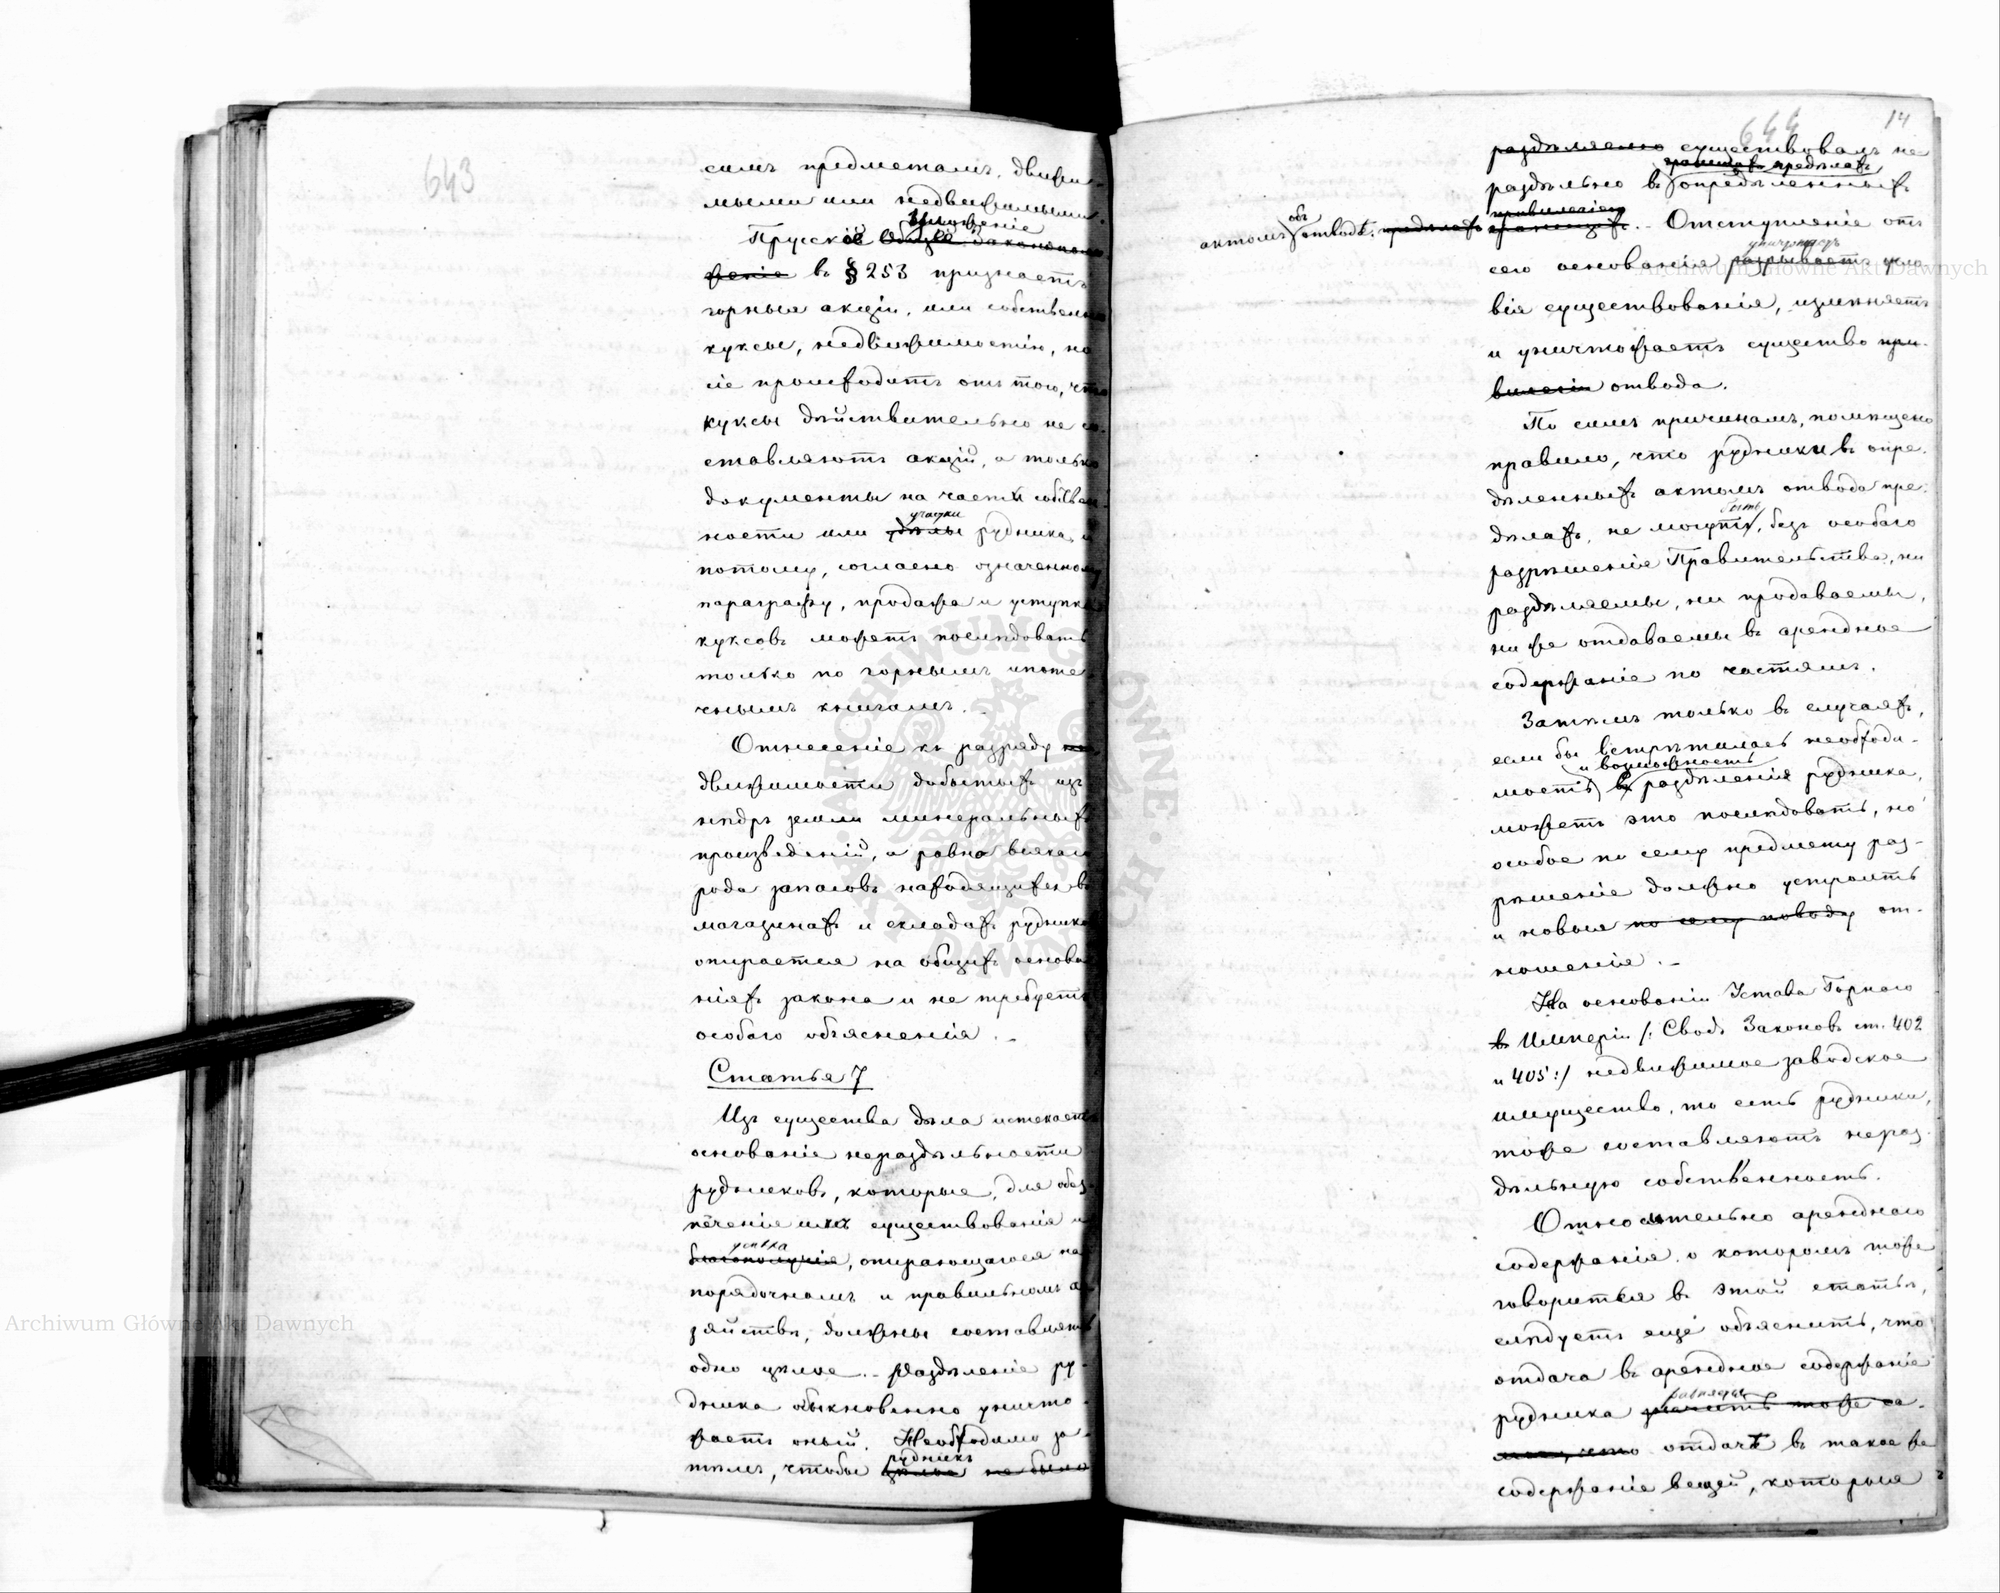 643
симъ предметамъ, движи-
мыми или недвижимыми.
Уложеніе
Прусское Общее Законополо-
женіе въ § 253 признаетъ
горныя акціи, или собственно
куксы, недвижимостію, но
сіе происходитъ отъ того, что
куксы дѣйствительно не со-
ставляютъ акцій, а только
документы на части собствен-
участки
ности или дѣлы рудника, и
потому, согласно означенному
параграфу, продажа и уступка
куксовъ можетъ послѣдовать
только по горнымъ ипоте-
чнымъ книгамъ.
Отнесеніе къ разряду не-
движимости добытыхъ изъ
нѣдръ земли минеральныхъ
произведеній, а равно всякаго
рода запасовъ находящихся въ
магазинахъ и складахъ рудника
опирается на общихъ основа-
ніяхъ закона и не требуетъ
особаго объясненія.
Статья 7
Изъ существа дѣла истекаетъ
основаніе нераздѣльности
рудниковъ, которые, для обез-
печенія ихъ существованія и
успѣха
благополучія, опирающагося на
порядочномъ и правильномъ хо-
зяйствѣ, должны составлять
одно цѣлое. Раздѣленіе ру-
дника обыкновенно уничто-
жаетъ оный. Необходимо за-
рудникъ
тѣмъ, чтобы цѣлое не было
644
14
раздѣляемо существовалъ не
границахъ предѣлахъ
раздѣльно въ опредѣленныхъ
привилегіею
объ
актомъ отводѣ предѣлахъ границахъ. Отступленіе отъ
сего основанія разрываетъ усло-
вія существованія, измѣняетъ
и уничтожаетъ существо при-
вилегіи отвода.
По симъ причинамъ, помѣщено
правило, что рудники въ опре-
дѣленныхъ актомъ отвода пре-
быть
дѣлахъ, не могутъ, безъ особаго
разрѣшенія Правительства, ни
раздѣляемы, ни продаваемы,
ни же отдаваемы въ арендное
содержаніе по частямъ.
Затѣмъ только въ случаяхъ,
если бы встрѣтилась необходи-
и возможность
мость въ раздѣленія рудника,
можетъ это послѣдовать, но
особое по сему предмету раз-
рѣшеніе должно устроить
и новыя по сему поводу от-
ношенія.
На основаніи Устава Горнаго
въ Имперіи /: Сводъ Законовъ ст. 402
и 405:/ недвижимое заводское
имущество, то есть рудники,
тоже составляютъ нераз-
дѣльную собственность.
Относительно аренднаго
содержанія, о которомъ тоже
говорится въ этой статьѣ,
слѣдуетъ еще объяснить, что
отдача въ арендное содержаніе
равняется
рудника значитъ тоже са-
мое, что отдачѣ въ такое же
содержаніе вещей, которыя
Archiwum Główne Akt Dawnych
Archiwum Główne Akt Dawnych